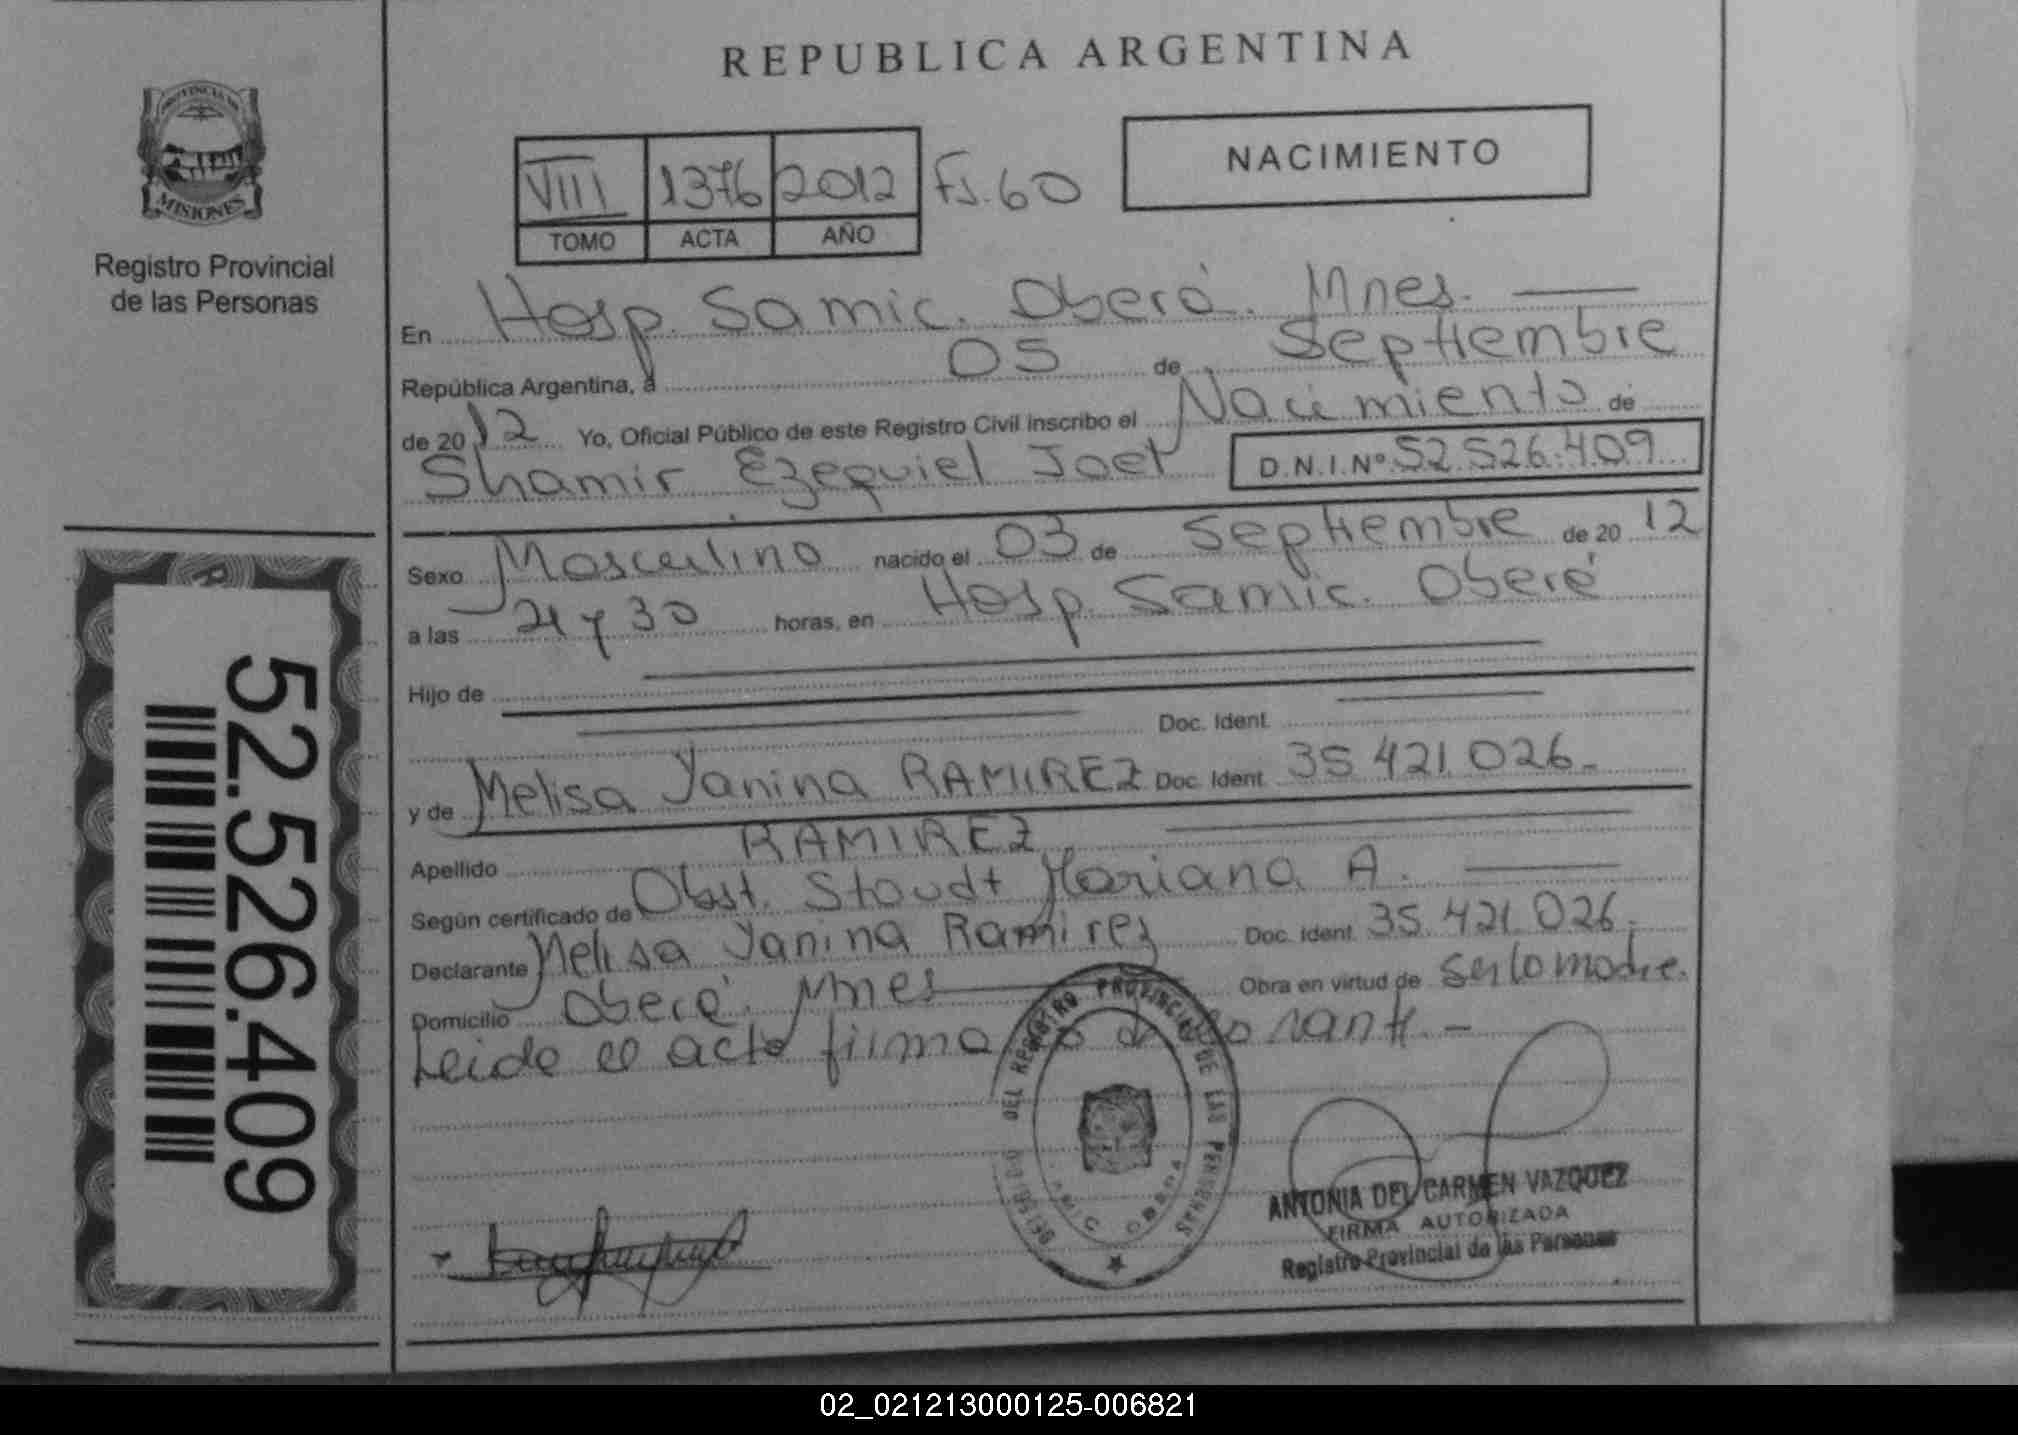 REPUBLICA ARGENTINA
PROVINCIA DE
MISIONES
Registro Provincial
de las Personas
VIII 1376 2012 Fs. 60
TOMO ACTA AÑO
NACIMIENTO
En Hosp. Samic. Oberá. Mnes.
República Argentina, a 05 de Septiembre
de 2012 Yo, Oficial Público de este Registro Civil inscribo el Nacimiento de
Shamir Ezequiel Joel D.N.I.Nº 52.526.409
Sexo Masculino nacido el 03 de Septiembre de 2012
a las 21 y 30 horas, en Hosp. Samic. Oberá
Hijo de
Doc. Ident.
y de Melisa Yanina RAMIREZ Doc. Ident. 35.421.026.-
Apellido RAMIREZ
Según certificado de Obst. Stoudt Mariana A.
Declarante Melisa Yanina Ramirez Doc. Ident. 35.421.026.
Domicilio Oberá. Mnes Obra en virtud de ser la madre.
Leida el acta firma la declarante.-
52.526.409
DEL REGISTRO PROVINCIAL DE LAS PERSONAS
ANTONIA DEL CARMEN VAZQUEZ
FIRMA AUTORIZADA
Registro Provincial de las Personas
02_021213000125-006821